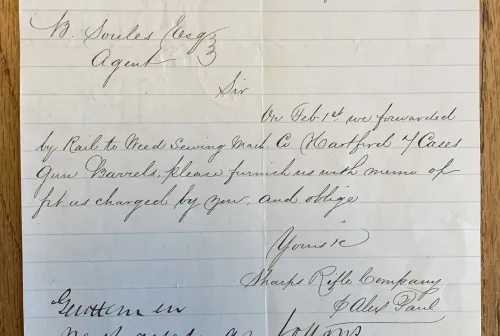 B. Soules Esq
Agent
Sir
On Feb 1st we forwarded
by Rail to Weed Sewing Mach. Co Hartford 7 Cases
Gun Barrels, please furnish us with memo of
frt us charged by you, and oblige
Yours &c
Sharps Rifle Company
Alex Paul
Gentlemen
as follows